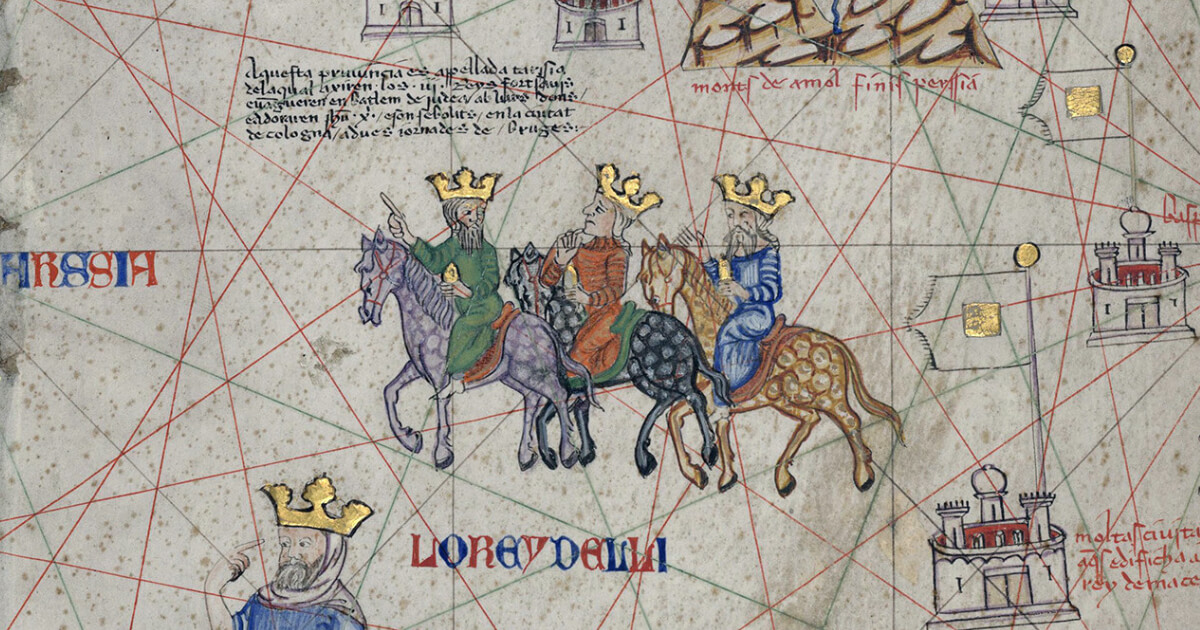 Aquesta prouincia es apellada tarssia
delaqual axiren los .iii. Reys fort sauis
euagueren en batlem de judea / ab lurs dons /
eadoraren jhu. x. / eson sebolits / en la ciutat
de cologna / adues jornades de / bruges:
monts de amol finis perssia
ARSSIA
LO REY DELLI
moltas ciuta
edificha a
rey de mace